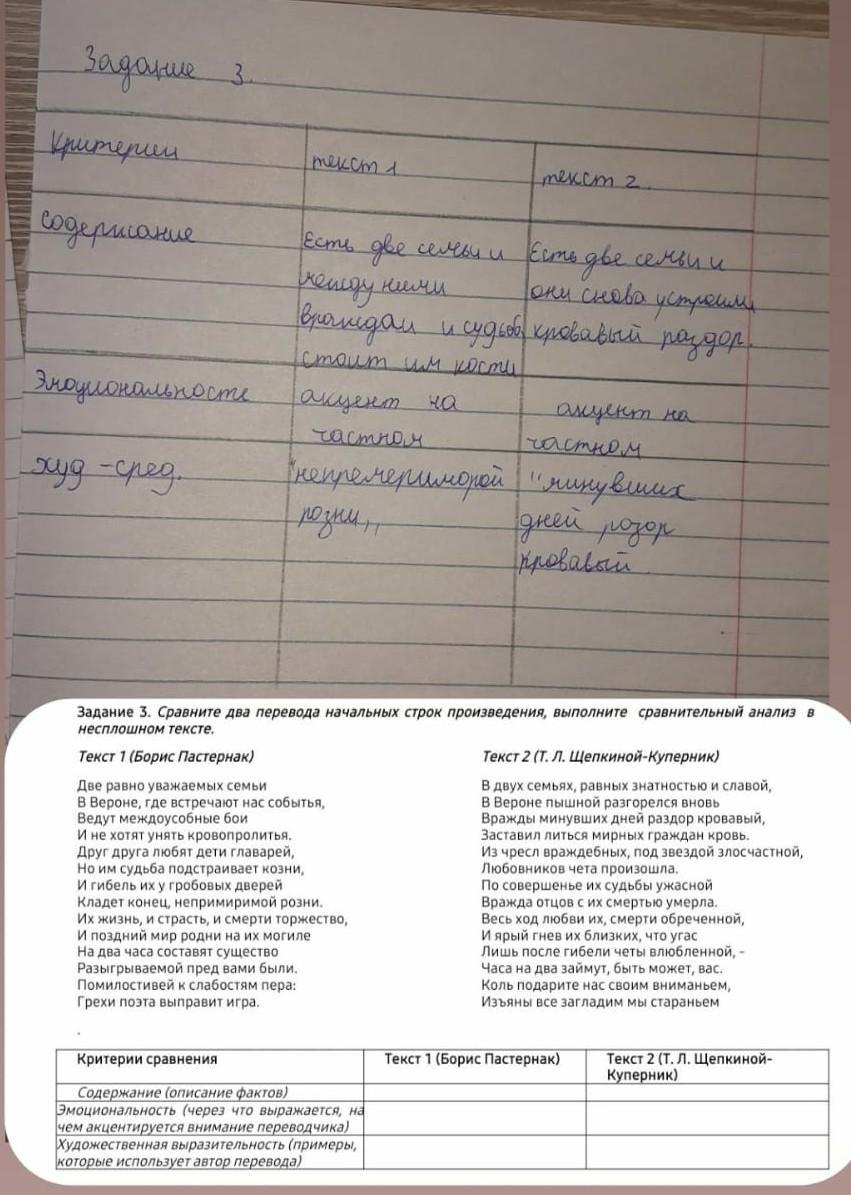 Задание 3.
Критерии
текст 1
текст 2.
содержание
Есть две семьи и
между ними
враждаи и судьба
стоит им кости
Есть две семьи и
они снова устроили
кровавый раздор.
Эмоциональность
акцент на
частном
акцент на
частном
худ-сред.
"непремериморой
розни,,
"минувших
дней розор
кровавый
Задание 3. Сравните два перевода начальных строк произведения, выполните сравнительный анализ в
несплошном тексте.
Текст 1 (Борис Пастернак)
Две равно уважаемых семьи
В Вероне, где встречают нас событья,
Ведут междоусобные бои
И не хотят унять кровопролитья.
Друг друга любят дети главарей,
Но им судьба подстраивает козни,
И гибель их у гробовых дверей
Кладет конец, непримиримой розни.
Их жизнь, и страсть, и смерти торжество,
И поздний мир родни на их могиле
На два часа составят существо
Разыгрываемой пред вами были.
Помилостивей к слабостям пера:
Грехи поэта выправит игра.
.
Текст 2 (Т. Л. Щепкиной-Куперник)
В двух семьях, равных знатностью и славой,
В Вероне пышной разгорелся вновь
Вражды минувших дней раздор кровавый,
Заставил литься мирных граждан кровь.
Из чресл враждебных, под звездой злосчастной,
Любовников чета произошла.
По совершенье их судьбы ужасной
Вражда отцов с их смертью умерла.
Весь ход любви их, смерти обреченной,
И ярый гнев их близких, что угас
Лишь после гибели четы влюбленной, -
Часа на два займут, быть может, вас.
Коль подарите нас своим вниманьем,
Изъяны все загладим мы стараньем
Критерии сравнения
Текст 1 (Борис Пастернак)
Текст 2 (Т. Л. Щепкиной-
Куперник)
Содержание (описание фактов)
Эмоциональность (через что выражается, на
чем акцентируется внимание переводчика)
Художественная выразительность (примеры,
которые использует автор перевода)